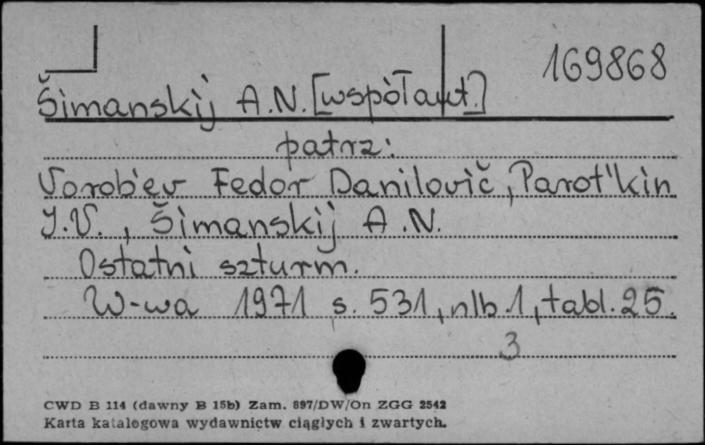 169868
Šimanskij A.N. [współaut.]
patrz:
Vorob'ev Fedor Danilovič, Parot'kin
I.V., Šimanskij A.N.
Ostatni szturm.
W-wa 1971 s. 531, nlb. 1, tabl. 25.
3
CWD B 114 (dawny B 15b) Zam. 897/DW/On ZGG 2542
Karta katalogowa wydawnictw ciągłych i zwartych.